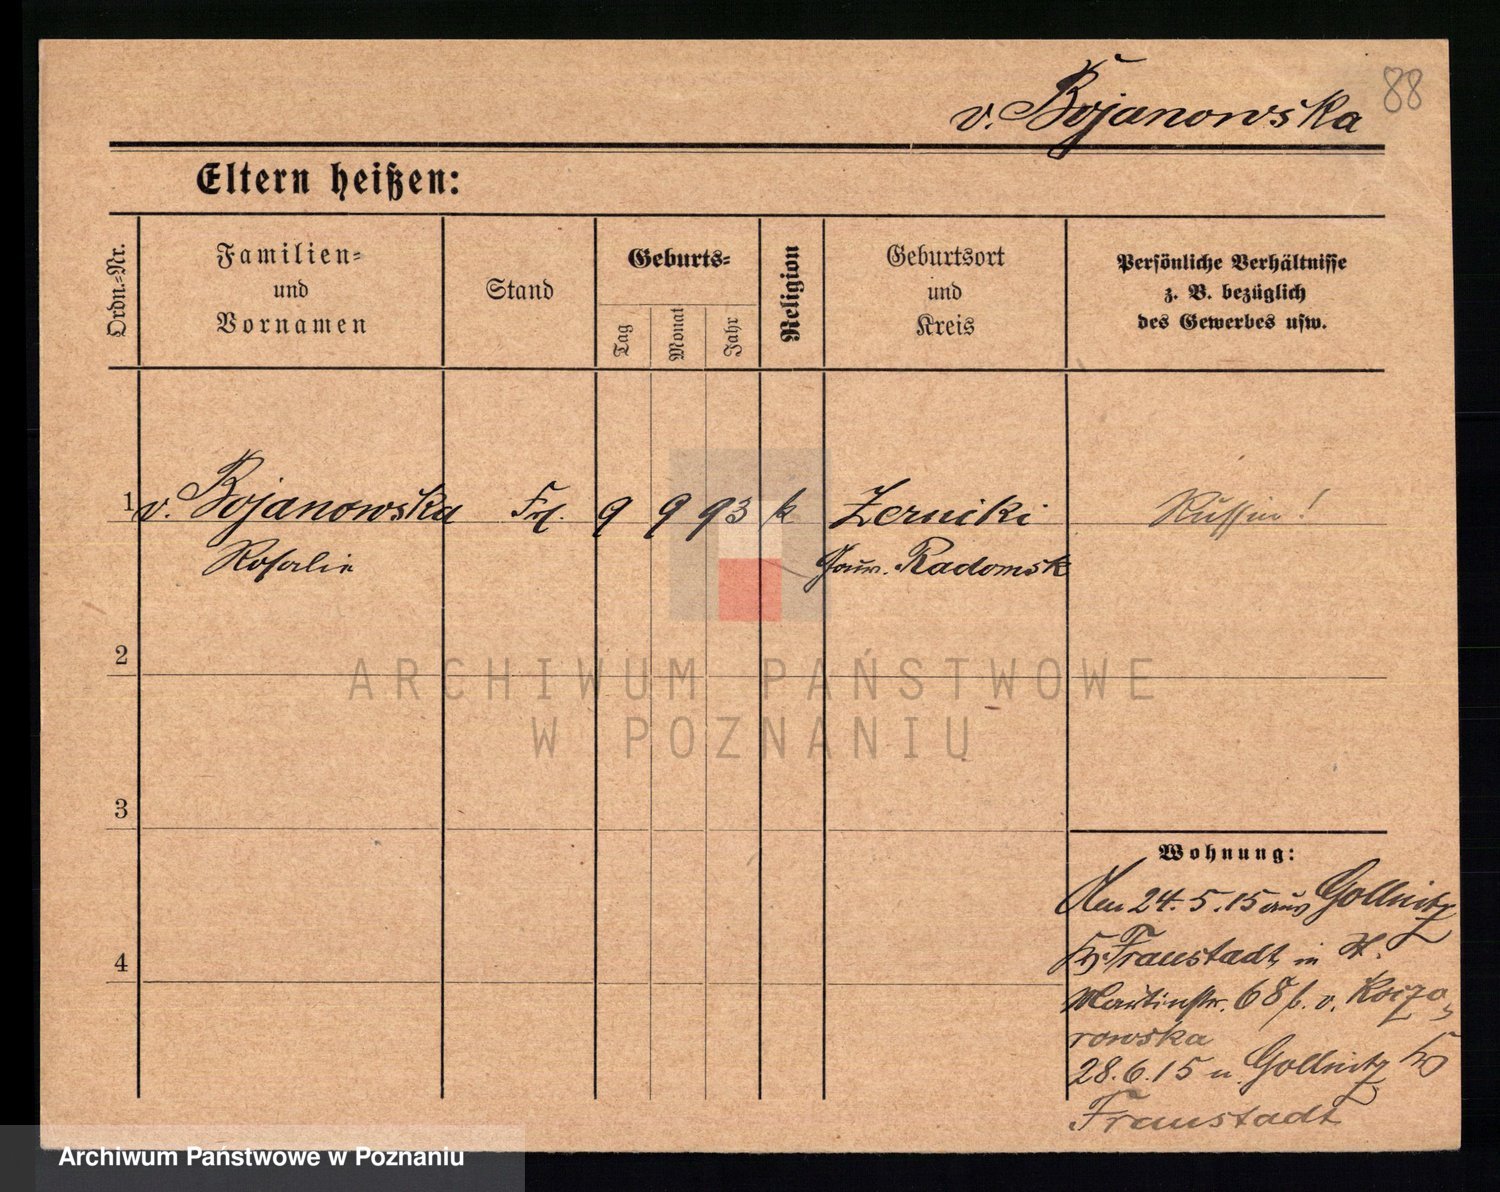 v. Bojanowska 88
Eltern heißen:
Ordn.=Nr.
Familien=
und
Vornamen
Stand
Geburts=
Tag
Monat
Jahr
Religion
Geburtsort
und
Kreis
Persönliche Verhältnisse
z. B. bezüglich
des Gewerbes usw.
1 v. Bojanowska Frl. 9 9 93 k Zerniki Russin!
Rosalie Gouv. Radomsk
2
3
4
Wohnung:
Den 24.5.15 aus Gollnitz
Kr. Fraustadt in St.
Martinstr. 68 b. v. Koczo
rowska
28.6.15 n. Gollnitz Kr
Fraustadt
ARCHIWUM PAŃSTWOWE
W POZNANIU
Archiwum Państwowe w Poznaniu